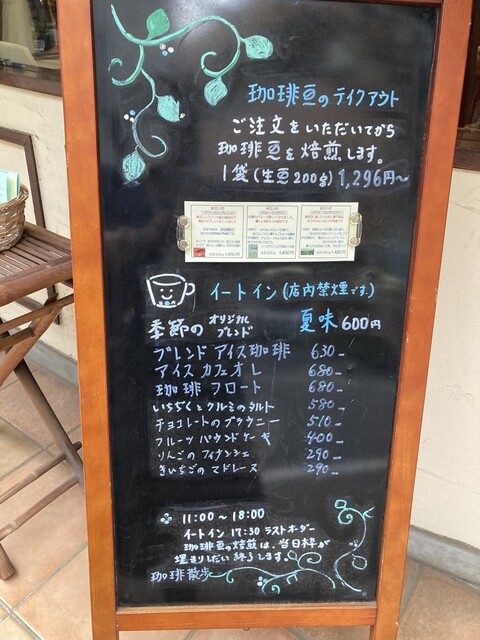 珈琲豆のテイクアウト
ご注文をいただいてから
珈琲豆を焙煎します。
1袋(生豆200g)1,296円～
イートイン(店内禁煙です。)
季節の オリジナルブレンド 夏味 600円
ブレンドアイス珈琲 630-
アイスカフェオレ 680-
珈琲フロート 680-
いちぢくとクルミのタルト 580-
チョコレートのブラウニー 510-
フルーツパウンドケーキ 400-
りんごのフィナンシェ 290-
きいちごのマドレーヌ 290-
11:00～18:00
イートイン 17:30 ラストオーダー
珈琲豆の焙煎は、当日枠が
埋まりしだい終了します。
珈琲散歩